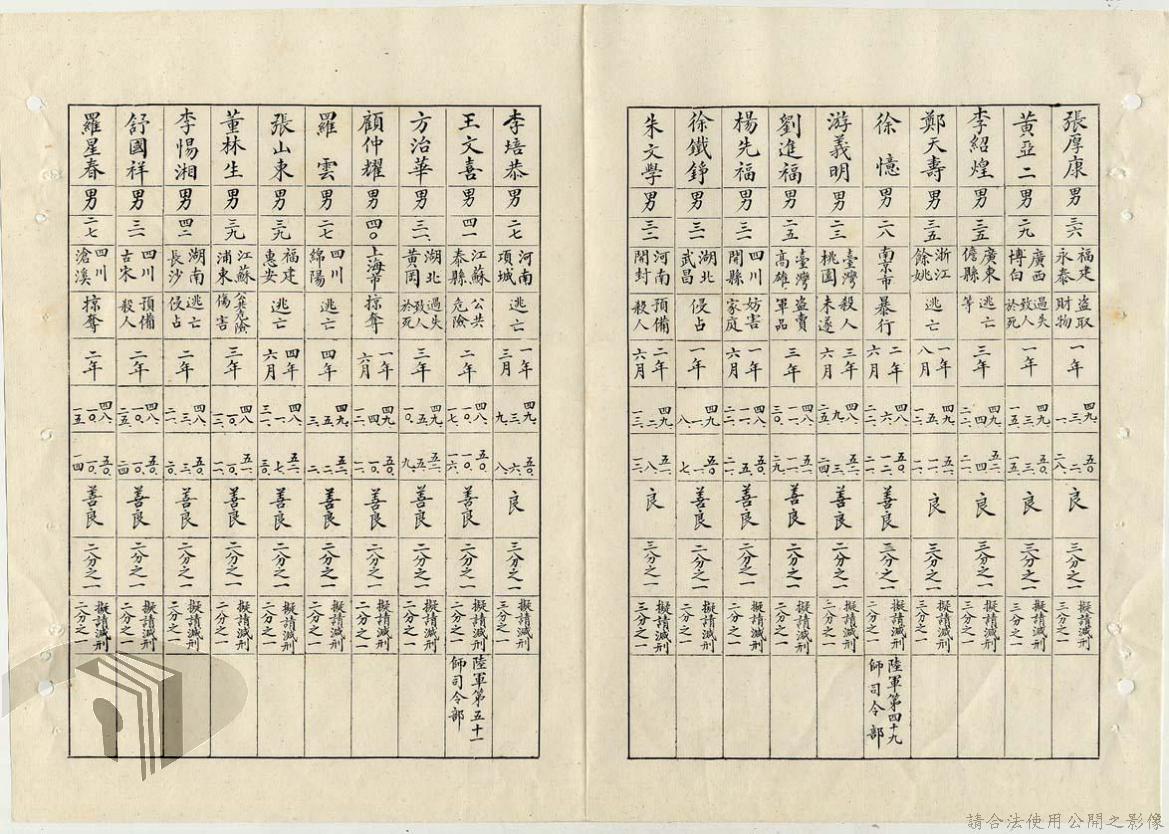 張厚康 男 三六 福建永泰 盜取財物 一年 四九.三.一. 五〇.二.二八. 良 三分之一 擬請減刑三分之一
黃亞二 男 二九 廣西博白 過失致人於死 一年 四九.三.一五. 五〇.三.一五. 良 三分之一 擬請減刑三分之一
李紹煌 男 三五 廣東儋縣 逃亡等 三年 四九.四.二二. 五二.四.二一. 良 三分之一 擬請減刑三分之一
鄭天壽 男 三五 浙江餘姚 逃亡 一年八月 四九.五.一二. 五一.一.一一. 良 三分之一 擬請減刑三分之一
徐憶 男 二八 南京市 暴行 二年六月 四八.六.二二. 五〇.一二.二一. 善良 二分之一 擬請減刑二分之一 陸軍第四十九師司令部
游義明 男 二三 臺灣桃園 殺人未遂 三年六月 四八.九.二五. 五二.三.二四. 善良 二分之一 擬請減刑二分之一
劉進福 男 二五 臺灣高雄 盜賣軍品 三年 四八.一一.三〇. 五一.一一.二九. 善良 二分之一 擬請減刑二分之一
楊先福 男 三二 四川開縣 妨害家庭 一年六月 四八.一一.二二. 五〇.五.二一. 善良 二分之一 擬請減刑二分之一
徐鐵錚 男 三二 湖北武昌 侵占 一年 四九.一.八. 五〇.一.七. 善良 二分之一 擬請減刑二分之一
朱文學 男 三二 河南開封 預備殺人 二年六月 四九.二.一三. 五一.八.一二. 良 三分之一 擬請減刑三分之一
李培恭 男 二七 河南項城 逃亡 一年三月 四九.三.九. 五〇.六.八. 良 三分之一 擬請減刑三分之一
王文喜 男 四一 江蘇泰縣 公共危險 二年 四八.一〇.一七. 五〇.一〇.一六. 善良 二分之一 擬請減刑二分之一 陸軍第五十一師司令部
方治華 男 三二 湖北黃岡 過失致人於死 三年 四九.五.一〇. 五二.五.九. 善良 二分之一 擬請減刑二分之一
顧仲耀 男 四〇 上海市 掠奪 一年六月 四九.四.二. 五〇.一〇.一. 善良 二分之一 擬請減刑二分之一
羅雲 男 二七 四川綿陽 逃亡 四年 四九.五.三. 五三.五.二. 善良 二分之一 擬請減刑二分之一
張山東 男 三九 福建惠安 逃亡 四年六月 四八.一.三一. 五二.七.三〇. 善良 二分之一 擬請減刑二分之一
董林生 男 三九 江蘇浦東 公共危險傷害 三年 四八.一〇.一二. 五一.一〇.一一. 善良 二分之一 擬請減刑二分之一
李惕湘 男 四二 湖南長沙 逃亡侵占 二年 四八.三.二一. 五〇.三.二〇. 善良 二分之一 擬請減刑二分之一
舒國祥 男 三二 四川古宋 預備殺人 二年 四八.一〇.二五. 五〇.一〇.二四. 善良 二分之一 擬請減刑二分之一
羅星春 男 二七 四川滄溪 掠奪 二年 四八.一〇.一五. 五〇.一〇.一四. 善良 二分之一 擬請減刑二分之一
請合法使用公開之影像